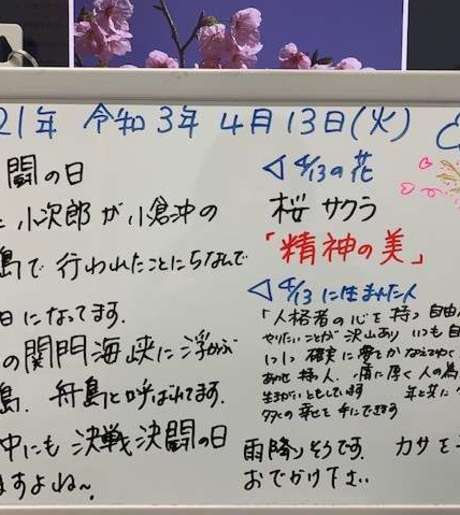 21年 令和3年4月13日(火)
闘の日
小次郎が小倉沖の
島で行われたことにちなんで
日になってます。
の関門海峡に浮かぶ
島、舟島と呼ばれてます。
中にも決戦決闘の日
ますよね〜
◁4/13の花
桜 サクラ
「精神の美」
◁4/13に生まれた人
「人格者の心を持つ 自由
やりたいことが沢山あり いつも自
確実に夢をかなえてゆく
あわせ持つ人。情に厚く人の為
生きがいとしています 年と共に
多くの幸せを手にできます
雨降りそうです。 カサを
おでかけ下さい